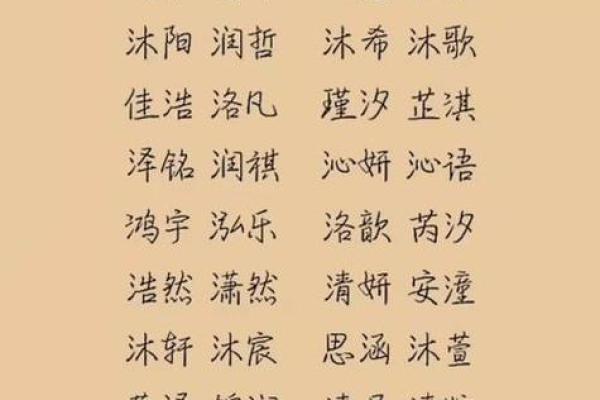 沐阳 润哲 沐希 沐歌
佳浩 洛凡 瑾汐 芷淇
泽铭 润祺 沁妍 沁语
鸿宇 泓乐 洛歆 芮汐
浩然 潇然 清妍 安潼
沐轩 沐宸 思涵 沐萱